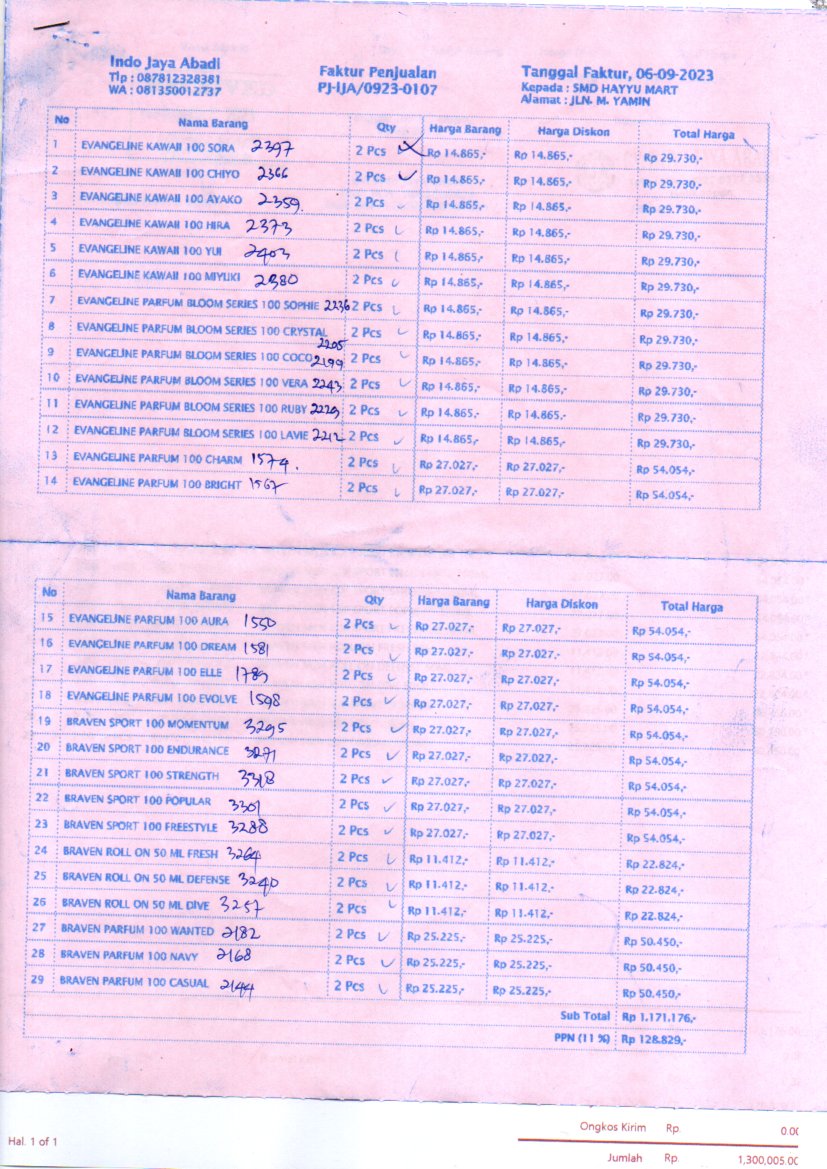 Indo Jaya Abadi
Tlp : 087812328381
WA : 081350012737
Faktur Penjualan
PJ-IJA/0923-0107
Tanggal Faktur, 06-09-2023
Kepada : SMD HAYYU MART
Alamat : JLN. M. YAMIN
No Nama Barang Qty Harga Barang Harga Diskon Total Harga
1 EVANGELINE KAWAII 100 SORA 2397 2 Pcs Rp 14.865,- Rp 14.865,- Rp 29.730,-
2 EVANGELINE KAWAII 100 CHIYO 2366 2 Pcs Rp 14.865,- Rp 14.865,- Rp 29.730,-
3 EVANGELINE KAWAII 100 AYAKO 2359 2 Pcs Rp 14.865,- Rp 14.865,- Rp 29.730,-
4 EVANGELINE KAWAII 100 HIRA 2373 2 Pcs Rp 14.865,- Rp 14.865,- Rp 29.730,-
5 EVANGELINE KAWAII 100 YUI 2403 2 Pcs Rp 14.865,- Rp 14.865,- Rp 29.730,-
6 EVANGELINE KAWAII 100 MIYUKI 2380 2 Pcs Rp 14.865,- Rp 14.865,- Rp 29.730,-
7 EVANGELINE PARFUM BLOOM SERIES 100 SOPHIE 2236 2 Pcs Rp 14.865,- Rp 14.865,- Rp 29.730,-
8 EVANGELINE PARFUM BLOOM SERIES 100 CRYSTAL 2205 2 Pcs Rp 14.865,- Rp 14.865,- Rp 29.730,-
9 EVANGELINE PARFUM BLOOM SERIES 100 COCO 2199 2 Pcs Rp 14.865,- Rp 14.865,- Rp 29.730,-
10 EVANGELINE PARFUM BLOOM SERIES 100 VERA 2243 2 Pcs Rp 14.865,- Rp 14.865,- Rp 29.730,-
11 EVANGELINE PARFUM BLOOM SERIES 100 RUBY 2229 2 Pcs Rp 14.865,- Rp 14.865,- Rp 29.730,-
12 EVANGELINE PARFUM BLOOM SERIES 100 LAVIE 2212 2 Pcs Rp 14.865,- Rp 14.865,- Rp 29.730,-
13 EVANGELINE PARFUM 100 CHARM 1574. 2 Pcs Rp 27.027,- Rp 27.027,- Rp 54.054,-
14 EVANGELINE PARFUM 100 BRIGHT 1567 2 Pcs Rp 27.027,- Rp 27.027,- Rp 54.054,-
No Nama Barang Qty Harga Barang Harga Diskon Total Harga
15 EVANGELINE PARFUM 100 AURA 1550 2 Pcs Rp 27.027,- Rp 27.027,- Rp 54.054,-
16 EVANGELINE PARFUM 100 DREAM 1581 2 Pcs Rp 27.027,- Rp 27.027,- Rp 54.054,-
17 EVANGELINE PARFUM 100 ELLE 1789 2 Pcs Rp 27.027,- Rp 27.027,- Rp 54.054,-
18 EVANGELINE PARFUM 100 EVOLVE 1598 2 Pcs Rp 27.027,- Rp 27.027,- Rp 54.054,-
19 BRAVEN SPORT 100 MOMENTUM 3295 2 Pcs Rp 27.027,- Rp 27.027,- Rp 54.054,-
20 BRAVEN SPORT 100 ENDURANCE 3271 2 Pcs Rp 27.027,- Rp 27.027,- Rp 54.054,-
21 BRAVEN SPORT 100 STRENGTH 3318 2 Pcs Rp 27.027,- Rp 27.027,- Rp 54.054,-
22 BRAVEN SPORT 100 POPULAR 3301 2 Pcs Rp 27.027,- Rp 27.027,- Rp 54.054,-
23 BRAVEN SPORT 100 FREESTYLE 3288 2 Pcs Rp 27.027,- Rp 27.027,- Rp 54.054,-
24 BRAVEN ROLL ON 50 ML FRESH 3264 2 Pcs Rp 11.412,- Rp 11.412,- Rp 22.824,-
25 BRAVEN ROLL ON 50 ML DEFENSE 3240 2 Pcs Rp 11.412,- Rp 11.412,- Rp 22.824,-
26 BRAVEN ROLL ON 50 ML DIVE 3257 2 Pcs Rp 11.412,- Rp 11.412,- Rp 22.824,-
27 BRAVEN PARFUM 100 WANTED 2182 2 Pcs Rp 25.225,- Rp 25.225,- Rp 50.450,-
28 BRAVEN PARFUM 100 NAVY 2168 2 Pcs Rp 25.225,- Rp 25.225,- Rp 50.450,-
29 BRAVEN PARFUM 100 CASUAL 2144 2 Pcs Rp 25.225,- Rp 25.225,- Rp 50.450,-
Sub Total Rp 1.171.176,-
PPN (11 %) Rp 128.829,-
Ongkos Kirim Rp. 0.00
Hal. 1 of 1
Jumlah Rp. 1,300,005.00